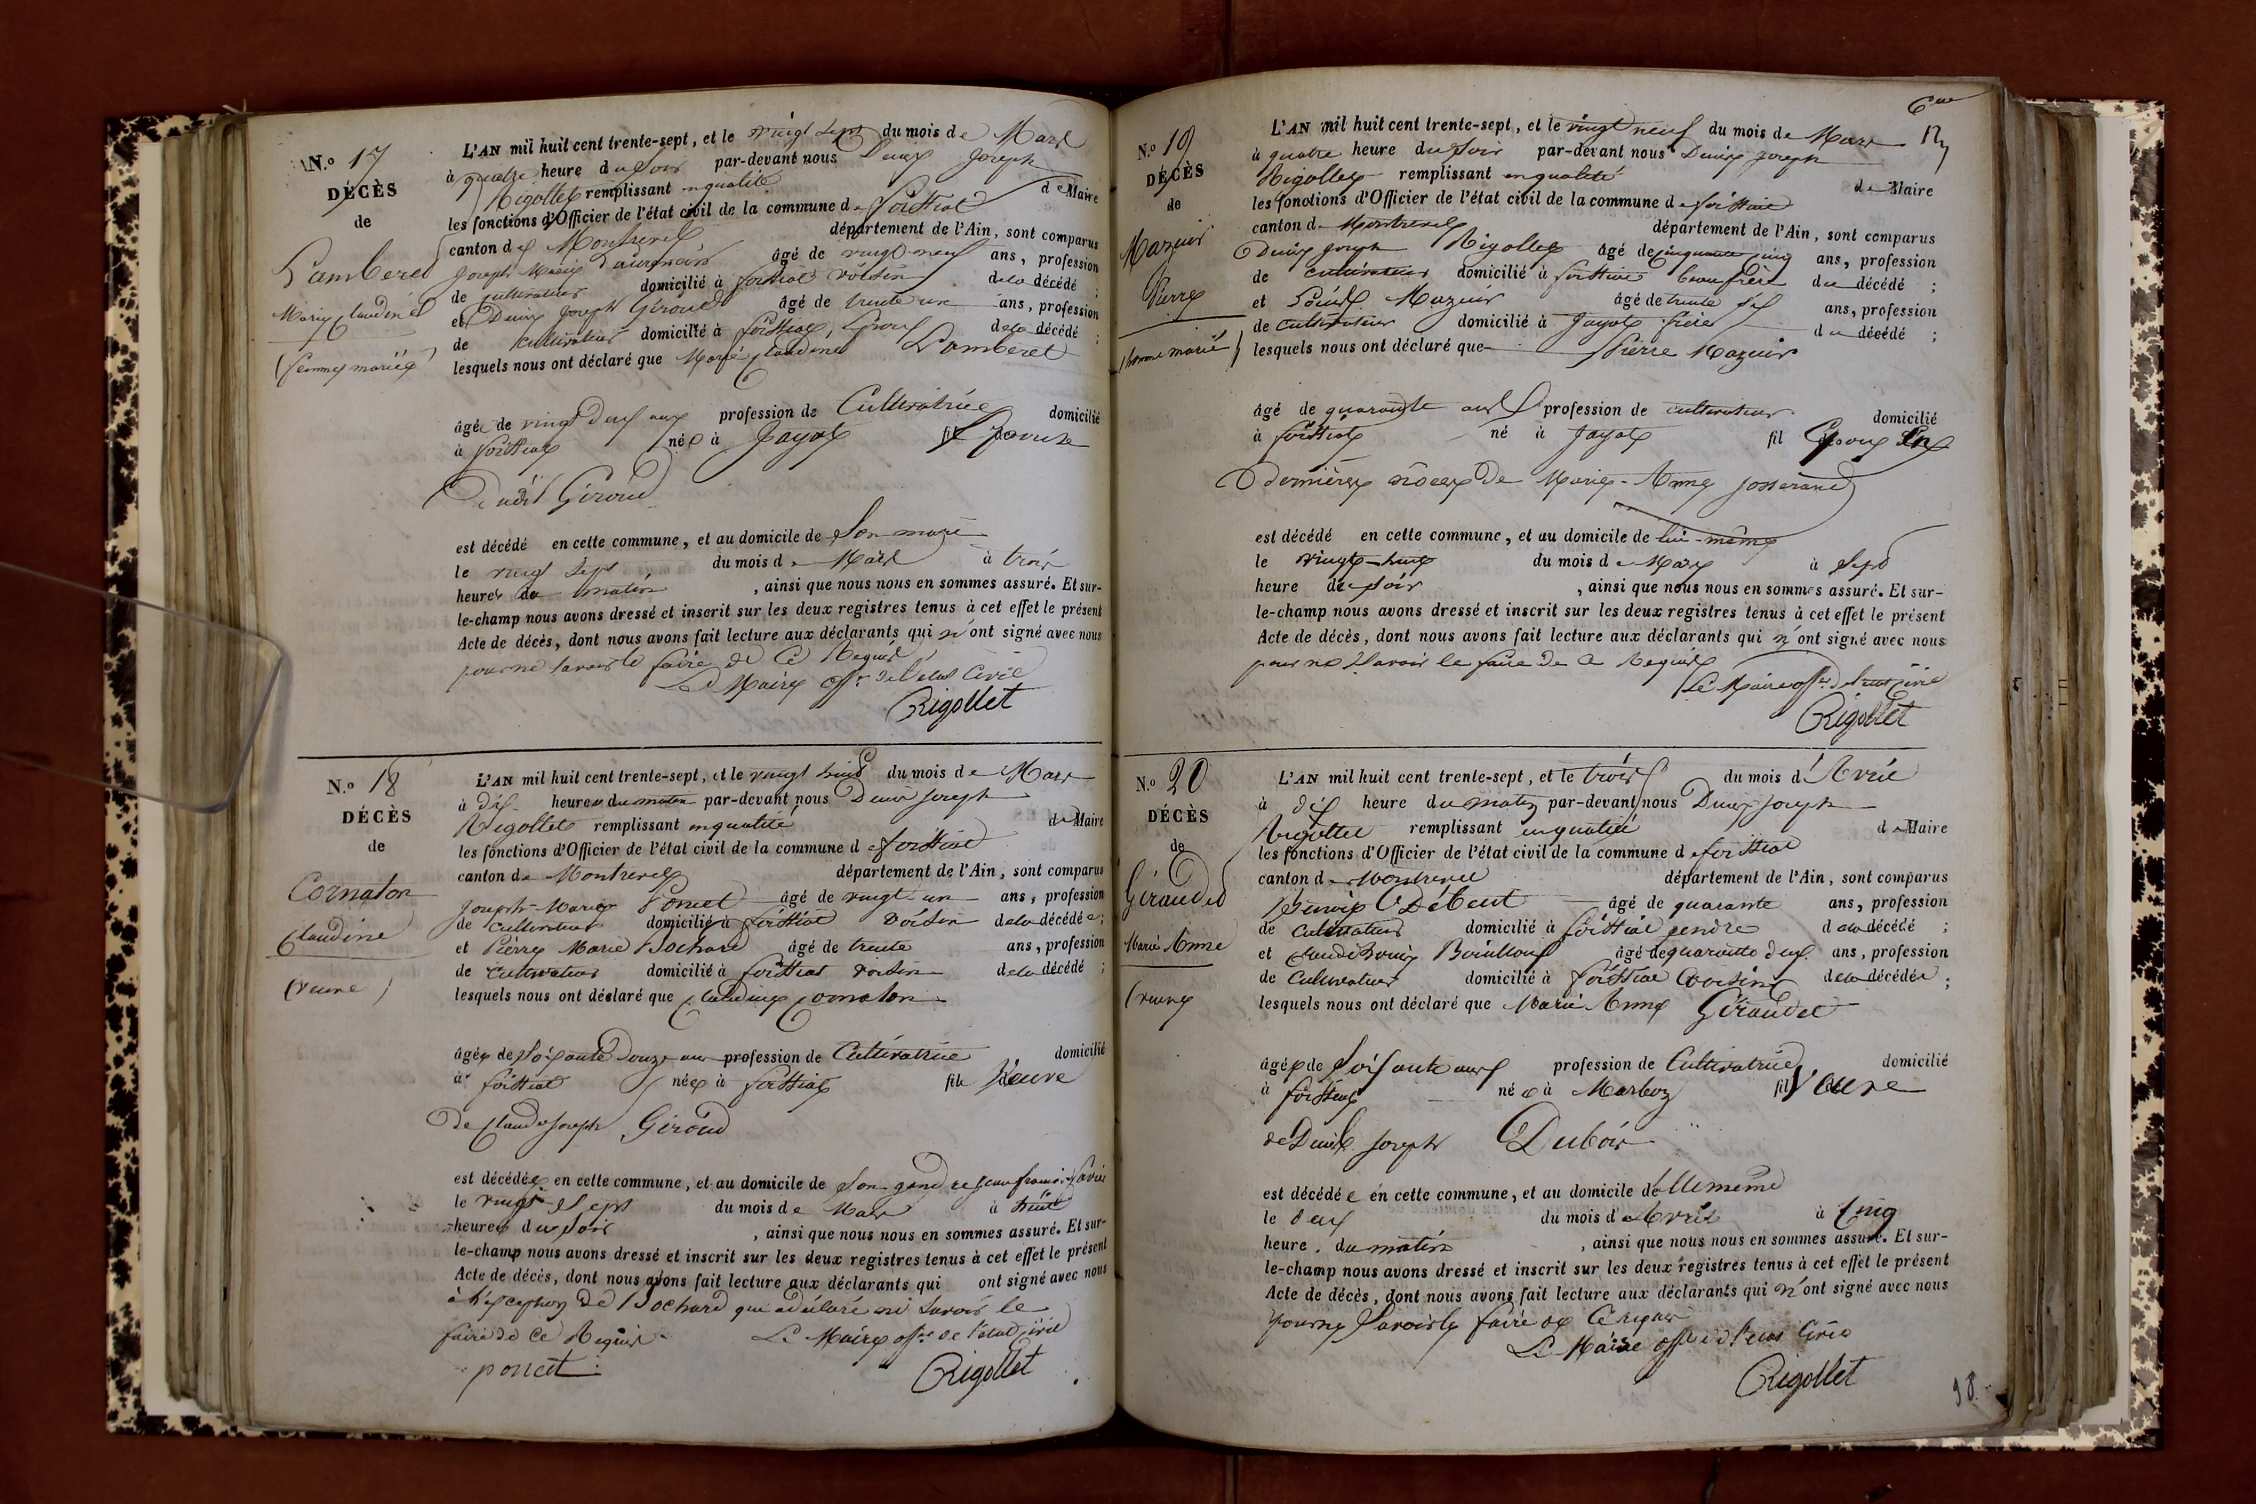 N.º 17
DÉCÈS
de
Lamberet
Marie Claudine
(femme mariée)
L'AN mil huit cent trente-sept, et le vingt sept du mois de Mars
à quatre heure du soir par-devant nous Denis Joseph
Rigollet remplissant en qualité de Maire
les fonctions d'Officier de l'état civil de la commune de foissiat
canton de Montrevel département de l'Ain, sont comparus
Joseph Marie âgé de vingt neuf ans, profession
de cultivateur domicilié à foissiat voisin de la décédé ;
et Denis Joseph Giroud âgé de trente un ans, profession
de cultivateur domicilié à foissiat, Epoux de la décédé ;
lesquels nous ont déclaré que Marie Claudine Lamberet
âgée de vingt deux ans profession de Cultivatrice domicilié
à foissiat née à Jayat fil Epouse
Dudit Giroud
est décédé en cette commune, et au domicile de Son mari
le vingt sept du mois de Mars à trois
heures du matin , ainsi que nous nous en sommes assuré. Et sur-
le-champ nous avons dressé et inscrit sur les deux registres tenus à cet effet le présent
Acte de décès, dont nous avons fait lecture aux déclarants qui n'ont signé avec nous
pour ne savoir le faire de ce Requis
Le Maire offr de l'état Civil
Rigollet
N.º 18
DÉCÈS
de
Cornaton
Claudine
(veuve)
L'AN mil huit cent trente-sept, et le vingt huit du mois de Mars
à dix heures du matin par-devant nous Denis Joseph
Rigollet remplissant en qualité de Maire
les fonctions d'Officier de l'état civil de la commune de foissiat
canton de Montrevel département de l'Ain, sont comparus
Joseph-Marie Poncet âgé de vingt un ans, profession
de cultivateur domicilié à foissiat voisin de la décédée ;
et Pierre Marie Bochard âgé de trente ans, profession
de cultivateur domicilié à foissiat voisin de la décédé ;
lesquels nous ont déclaré que Claudine Cornaton
âgée de Soixante Douze ans profession de Cultivatrice domicilié
à foissiat née à foissiat fil Veuve
De Claude Joseph Giroud
est décédée en cette commune, et au domicile de Son gendre Jean francois
le vingt Sept du mois de Mars à huit
heures du soir , ainsi que nous nous en sommes assuré. Et sur-
le-champ nous avons dressé et inscrit sur les deux registres tenus à cet effet le présent
Acte de décès, dont nous avons fait lecture aux déclarants qui ont signé avec nous
à l'exception de Bochard qui a déclaré ne savoir le
faire de ce Requis Le Maire offr de l'état Civil
poncet Rigollet
6me
N.º 19
DÉCÈS
de
Mazuir
Pierre
(homme marié)
L'AN mil huit cent trente-sept, et le vingt neuf du mois de Mars
à quatre heure du soir par-devant nous Denis Joseph
Rigollet remplissant en qualité de Maire
les fonctions d'Officier de l'état civil de la commune de foissiat
canton de Montrevel département de l'Ain, sont comparus
Denis Joseph Rigollet âgé de cinquante cinq ans, profession
de cultivateur domicilié à foissiat beau frère du décédé ;
et Louis Mazuir âgé de trente six ans, profession
de cultivateur domicilié à Jayat frère du décédé ;
lesquels nous ont déclaré que Pierre Mazuir
âgé de quarante ans profession de cultivateur domicilié
à foissiat né à Jayat fil Epoux En
Dernières nôces De Marie-Anne Josserand
est décédé en cette commune, et au domicile de lui-même
le vingt-huit du mois de Mars à Sept
heure du soir , ainsi que nous nous en sommes assuré. Et sur-
le-champ nous avons dressé et inscrit sur les deux registres tenus à cet effet le présent
Acte de décès, dont nous avons fait lecture aux déclarants qui n'ont signé avec nous
pour ne Savoir le faire de ce Requis
Le Maire offr de l'état Civil
Rigollet
N.º 20
DÉCÈS
de
Giraudet
Marie Anne
(veuve
L'AN mil huit cent trente-sept, et le trois du mois d'Avril
à dix heure du matin par-devant nous Denis Joseph
Rigollet remplissant en qualité de Maire
les fonctions d'Officier de l'état civil de la commune de foissiat
canton de Montrevel département de l'Ain, sont comparus
Denis Débeut âgé de quarante ans, profession
de cultivateur domicilié à foissiat gendre de la décédé ;
et Claude Denis Bouilloux âgé de quarante deux ans, profession
de cultivateur domicilié à foissiat Cousin de la décédée ;
lesquels nous ont déclaré que Marie Anne Giraudet
âgée de Soixante ans profession de Cultivatrice domicilié
à foissiat née à Marboz fil Veuve
de Denis Joseph Dubois
est décédée en cette commune, et au domicile d'elle même
le deux du mois d'Avril à Cinq
heure du matin , ainsi que nous nous en sommes assuré. Et sur-
le-champ nous avons dressé et inscrit sur les deux registres tenus à cet effet le présent
Acte de décès, dont nous avons fait lecture aux déclarants qui n'ont signé avec nous
pour ne Savoir le faire de ce requis
Le Maire offr de l'état Civil
Rigollet
98